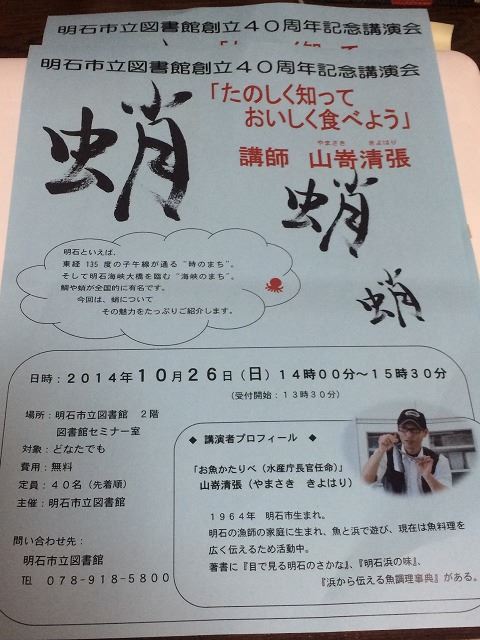 明石市立図書館創立４０周年記念講演会
明石市立図書館創立４０周年記念講演会
「たのしく知って
おいしく食べよう」
やまさき　きよはり
講師　山嵜清張
蛸
蛸
蛸
明石といえば、
東経 135 度の子午線が通る “時のまち”。
そして明石海峡大橋を臨む “海峡のまち”。
鯛や蛸が全国的に有名です。
今回は、蛸について
その魅力をたっぷりご紹介します。
日時：２０１４年１０月２６日（日）１４時００分～１５時３０分
（受付開始：１３時３０分）
場所：明石市立図書館　２階
図書館セミナー室
対象：どなたでも
費用：無料
定員：４０名（先着順）
主催：明石市立図書館
問い合わせ先：
明石市立図書館
TEL　０７８-９１８-５８００
◆ 講演者プロフィール ◆
「お魚かたりべ（水産庁長官任命）」
山嵜清張（やまさき　きよはり）
１９６４年　明石市生まれ。
明石の漁師の家庭に生まれ、魚と浜で遊び、現在は魚料理を
広く伝えるため活動中。
著書に『目で見る明石のさかな』、『明石浜の味』、
『浜から伝える魚調理事典』がある。